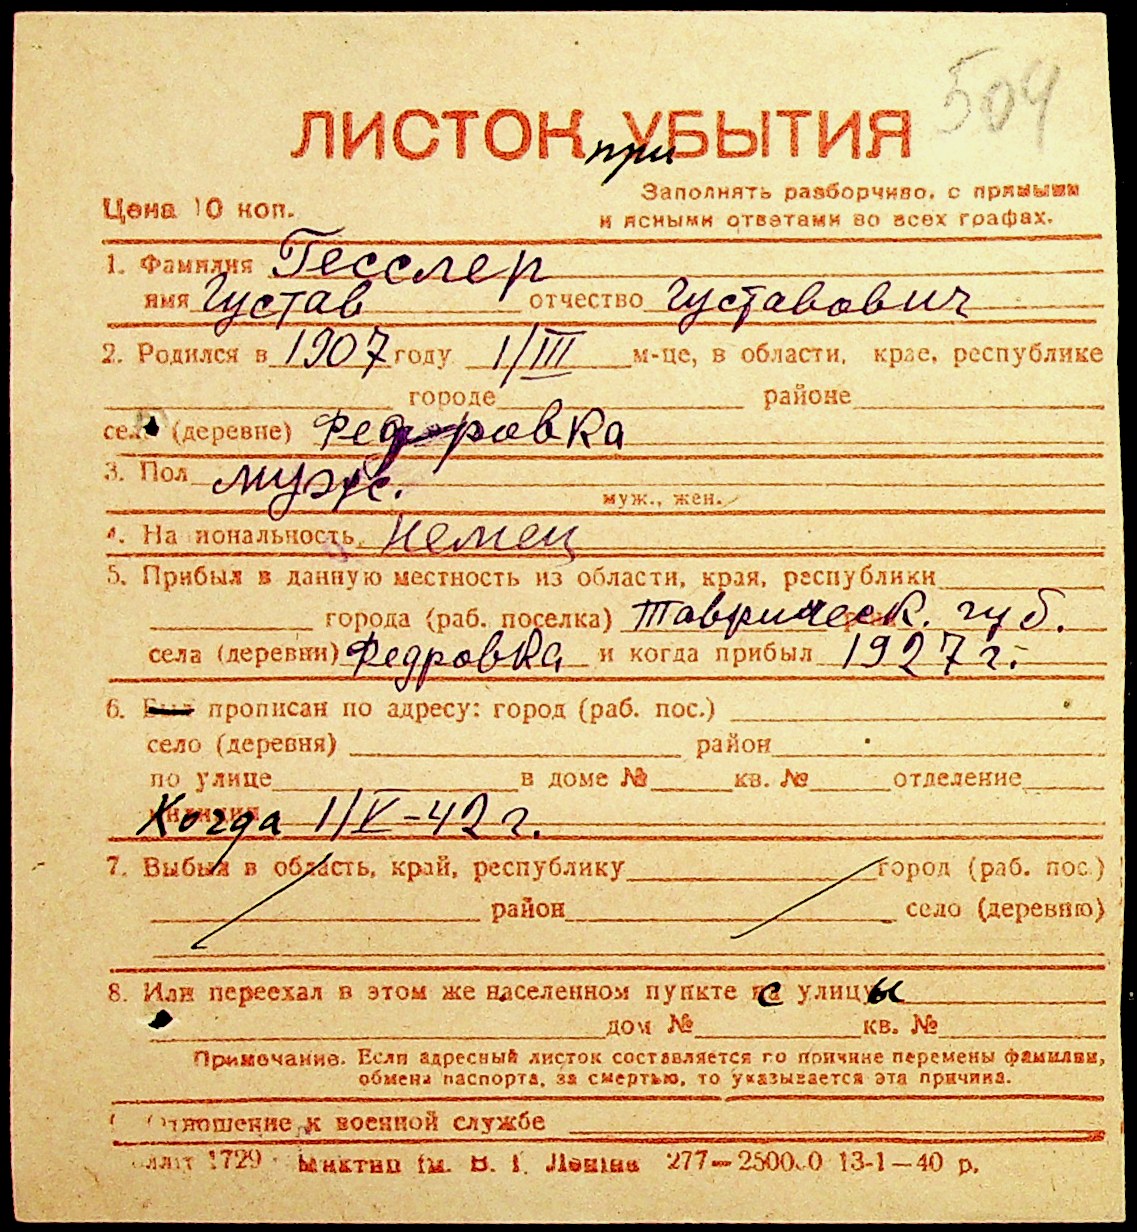 504
ЛИСТОК при УБЫТИЯ
Цена 10 коп.
Заполнять разборчиво, с прямыми
и ясными ответами во всех графах.
1. Фамилия Гесслер
имя Густав отчество Густавович
2. Родился в 1907 году 1/III м-це, в области, крае, республике
городе районе
селе (деревне) Федоровка
3. Пол муж.
муж., жен.
4. Национальность немец
5. Прибыл в данную местность из области, края, республики
города (раб. поселка) Таврическ. губ.
села (деревни) Федровка и когда прибыл 1927 г.
6. Был прописан по адресу: город (раб. пос.)
село (деревня) район
по улице в доме № кв. № отделение
милиции Когда 1/V-42 г.
7. Выбыл в область, край, республику город (раб. пос.)
район село (деревню)
8. Или переехал в этом же населенном пункте с улицы
дом № кв. №
Примечание. Если адресный листок составляется по причине перемены фамилии,
обмена паспорта, за смертью, то указывается эта причина.
Отношение к военной службе
1729 им. В. И. Ленина 277—250000 13-1—40 р.